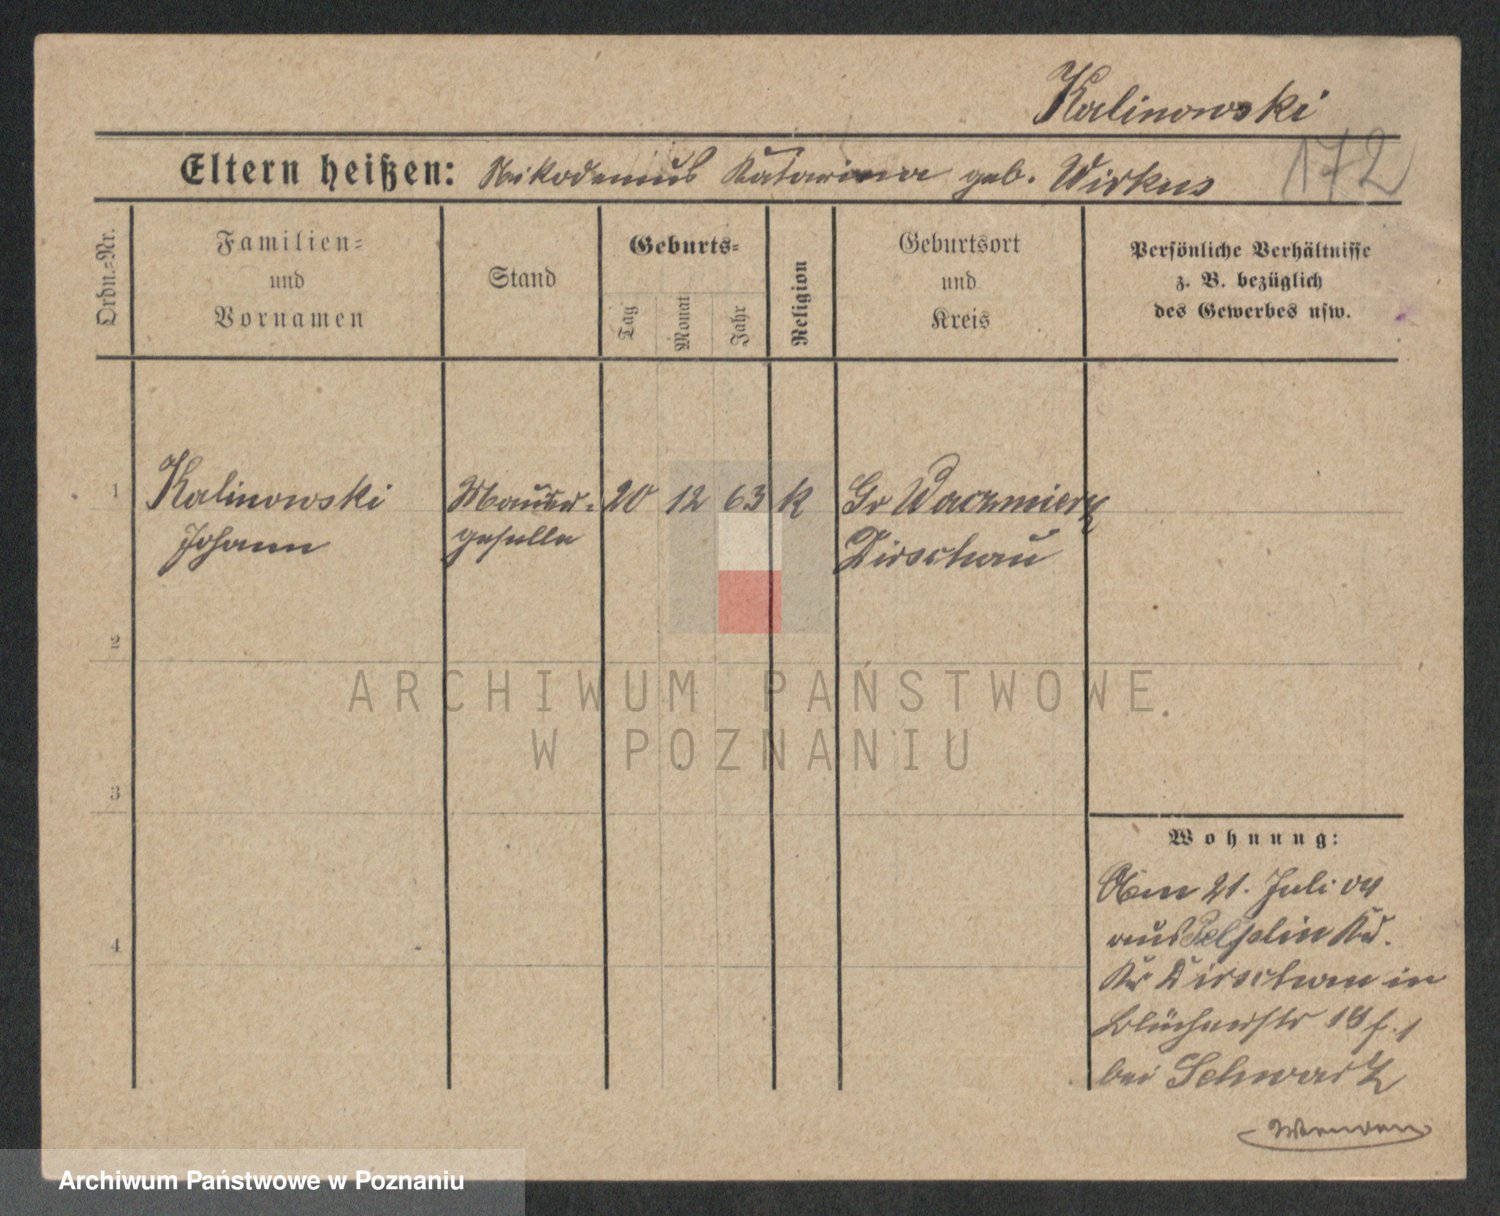 Kalinowski
Eltern heißen: Nikodemus Katarina geb. Wirkus
172
Ordn.=Nr.
Familien=
und
Vornamen
Stand
Geburts=
Tag
Monat
Jahr
Religion
Geburtsort
und
Kreis
Persönliche Verhältnisse
z. B. bezüglich
des Gewerbes usw.
1 Kalinowski Maurer= 20 12 63 k Gr Waczmierz
Johann geselle Dirschau
2
3
4
Wohnung:
Am 21. Juli 04
aus Pelplin
Kr Dirschau in
Blücherstr 18
bei Schwartz
ARCHIWUM PAŃSTWOWE
W POZNANIU
Archiwum Państwowe w Poznaniu